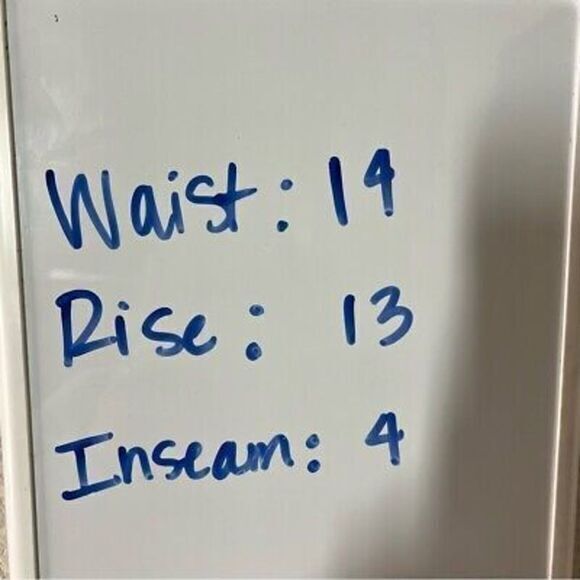 Waist: 14
Rise: 13
Inseam: 4